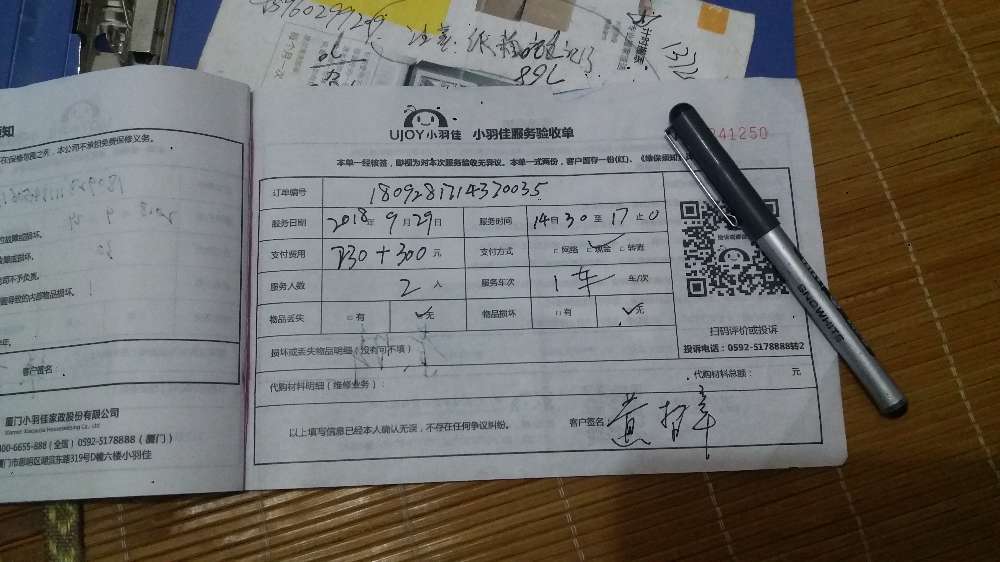 15960299269
注意:
89L
UJOY小羽佳 小羽佳服务验收单
41250
本单一经核签,即视为对本次服务验收无异议。本单一式两份,客户留存一份(红)。《维保须知》
订单编号 1809281714330035
服务日期 2018年9月29日 服务时间 14时30至17止0
支付费用 730+300元 支付方式 □网络 ✓现金 □转账
服务人数 2人 服务车次 1车 车/次
物品丢失 □有 ✓无 物品损坏 □有 ✓无
损坏或丢失物品明细(没有可不填)
扫码评价或投诉
投诉电话:0592-5178888转2
代购材料明细(维修业务): 代购材料总额: 元
以上填写信息已经本人确认无误,不存在任何争议纠纷。 客户签名:
SNOWHITE
在保修范围之外,本公司不承担免费保修义务。
客户签名
厦门小羽佳家政股份有限公司
00-6655-888(全国) 0592-5178888(厦门)
厦门市思明区湖滨东路319号D幢六楼小羽佳